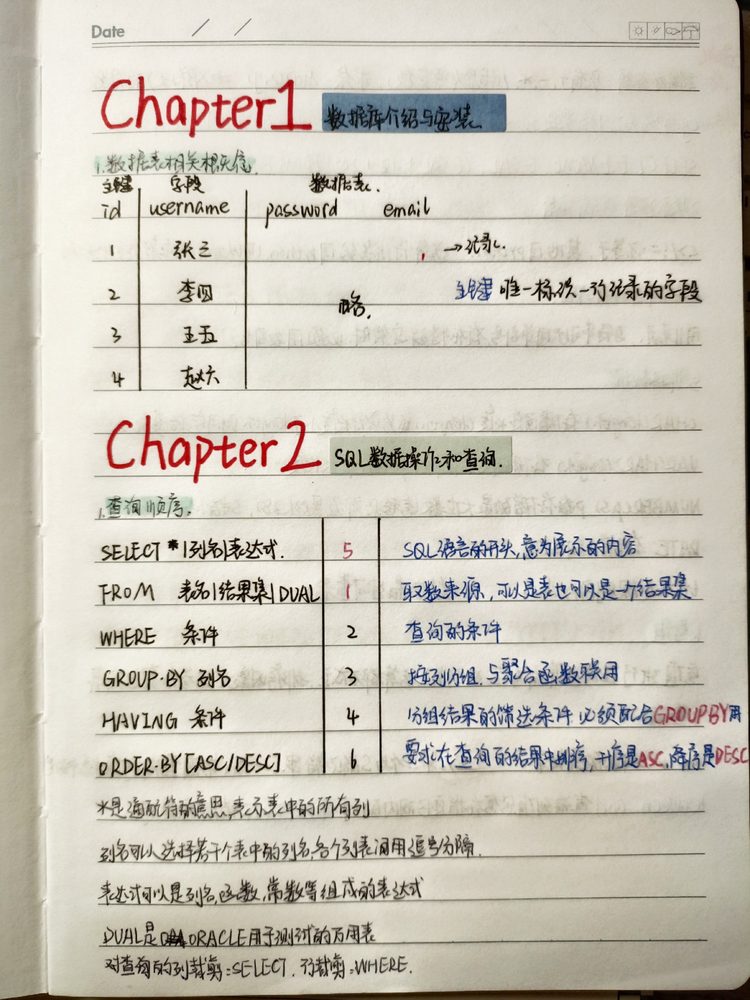 Date / /
Chapter1 数据库介绍与安装
1.数据表相关概念
主键 字段 数据表.
id username password email
1 张三 →记录.
2 李四 略. 主键 唯一标识一行记录的字段
3 王五
4 赵六
Chapter2 SQL数据操作和查询.
1.查询顺序.
SELECT *|列名|表达式. 5 SQL语言的开头,意为展示的内容
FROM 表名|结果集|DUAL 1 取数来源,可以是表也可以是一个结果集
WHERE 条件 2 查询的条件
GROUP·BY 列名 3 按列分组,与聚合函数联用
HAVING 条件 4 分组结果的筛选条件 必须配合GROUP BY用
ORDER·BY[ASC/DESC] 6 要求在查询的结果中排序,升序是ASC,降序是DESC
*是通配符的意思,表示表中的所有列
列名可以选择若干个表中的列名,各个列表间用逗号分隔.
表达式可以是列名,函数,常数等组成的表达式
DUAL是ORACLE用于测试的万用表
对查询的列裁剪:SELECT. 行裁剪:WHERE.